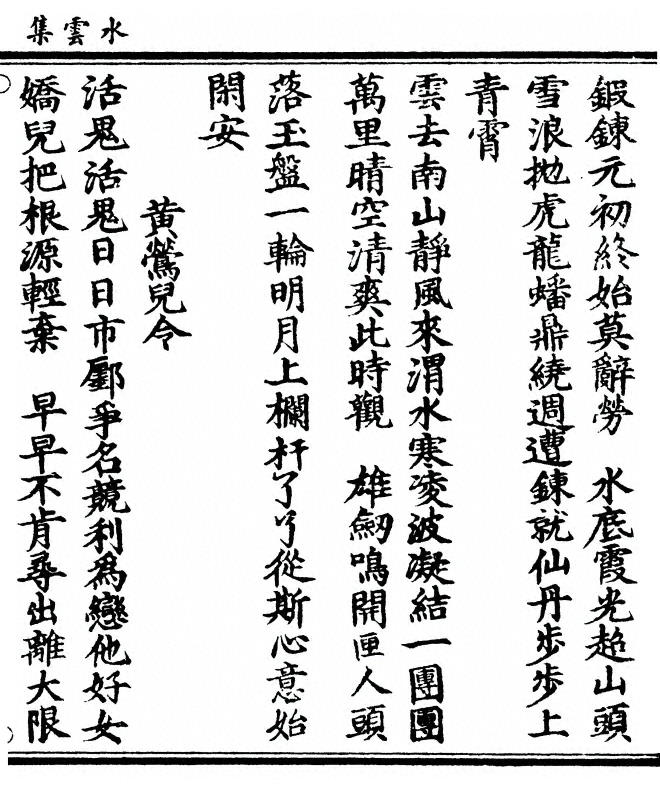 水雲集
鍛鍊元初終始莫辭勞　水底霞光趂山頭
雪浪拋虎龍蟠鼎繞週遭鍊就仙丹步步上
青霄
雲去南山靜風來渭水寒凌波凝結一團團
萬里晴空清爽此時觀　雄劒鳴開匣人頭
落玉盤一輪明月上欄杆了了從斯心意始
閑安
黃鶯兒令
活鬼活鬼日日市郾爭名競利為戀他好女
嬌兒把根源輕棄　早早不肯尋出離大限